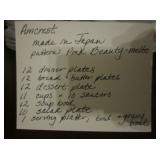 Amcrest
made in Japan
pattern Pink Beauty - melto
12 dinner plates
12 bread + butter plates
12 dessert plate
11 cups + 10 saucers
12 soup bowl
10 salad plate
1 serving platter, bowl + gravy boat